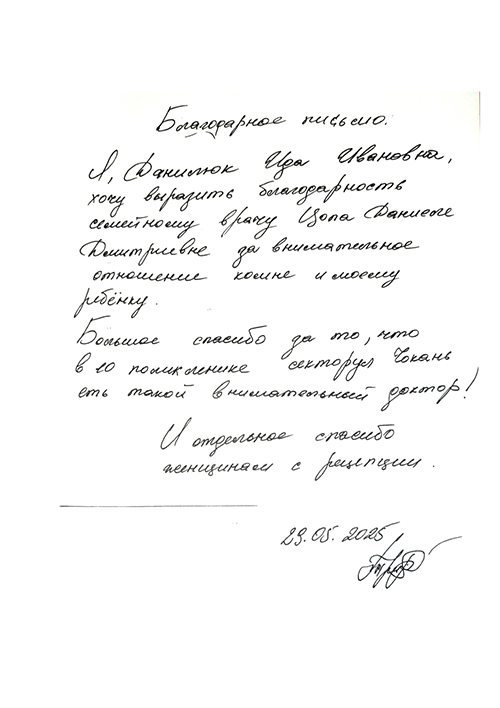 Благодарное письмо.
Я, Данилюк Ида Ивановна,
хочу выразить благодарность
семейному врачу Цопа Даниеле
Дмитриевне за внимательное
отношение комне и моему
ребёнку.
Большое спасибо за то, что
в 10 поликленике секторул Чокань
есть такой внимательный доктор!
И отдельное спасибо
женщинам с рецепции.
29.05.2025